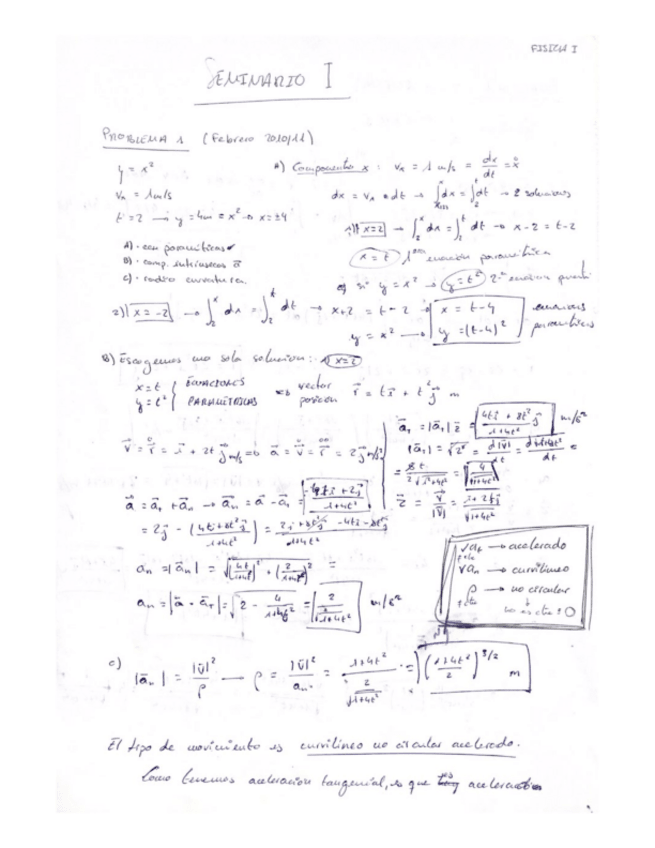 FISICA I
SEMINARIO I
PROBLEMA 1 (Febrero 2010/11)
y = x²
vₓ = 1 m/s
t = 2 → y = 4m = x² → x = ±4
A) - ecu paramétricas
B) - comp. intrínsecas a⃗
C) - radio curvatura
A) Componente x : vₓ = 1 m/s = dx/dt = ẋ
dx = vₓ · dt → ∫dx = ∫dt → 2 soluciones
1) x=2 → ∫₂ˣ dx = ∫₂ᵗ dt → x-2 = t-2
x = t 1ª ecuación paramétrica
si y = x² → y = t² 2ª ecuación
2) x = -2 → ∫₂ˣ dx = ∫₂ᵗ dt → x+2 = t-2 → x = t-4 ecuaciones
y = x² → y = (t-4)² paramétricas
B) Escogemos una sola solución: 1) x=2
x = t
y = t²
ECUACIONES
PARAMÉTRICAS
⇒ vector posición r⃗ = t i⃗ + t² j⃗ m
v⃗ = r⃗˙ = i⃗ + 2t j⃗ m/s ⇒ a⃗ = v⃗˙ = r⃗¨ = 2 j⃗ m/s²
a⃗ₜ = |a⃗ₜ| τ⃗ = (4t i⃗ + 8t² j⃗)/(1+4t²) m/s²
τ⃗ = v⃗/|v⃗| = (i + 2t j⃗)/√(1+4t²)
a⃗ = a⃗ₜ + a⃗ₙ → a⃗ₙ = a⃗ - a⃗ₜ = (-4t i + 2 j⃗)/(1+4t²)
= 2j⃗ - ((4t i + 8t² j⃗)/(1+4t²)) = (2j + 8t² j - 4t i - 8t² j)/(1+4t²)
aₙ = |a⃗ₙ| = √((4t/(1+4t²))² + (2/(1+4t²))²) =
m/s²
aₜ → acelerado
aₙ → curvilíneo
ρ → no circular
c) |a⃗ₙ| = |v⃗|²/ρ → ρ = |v⃗|²/aₙ = (1+4t²)/(2/√(1+4t²)) = ((1+4t²)/2)^(3/2) m
El tipo de movimiento es curvilíneo no circular acelerado.
Como tenemos aceleración tangencial, es que